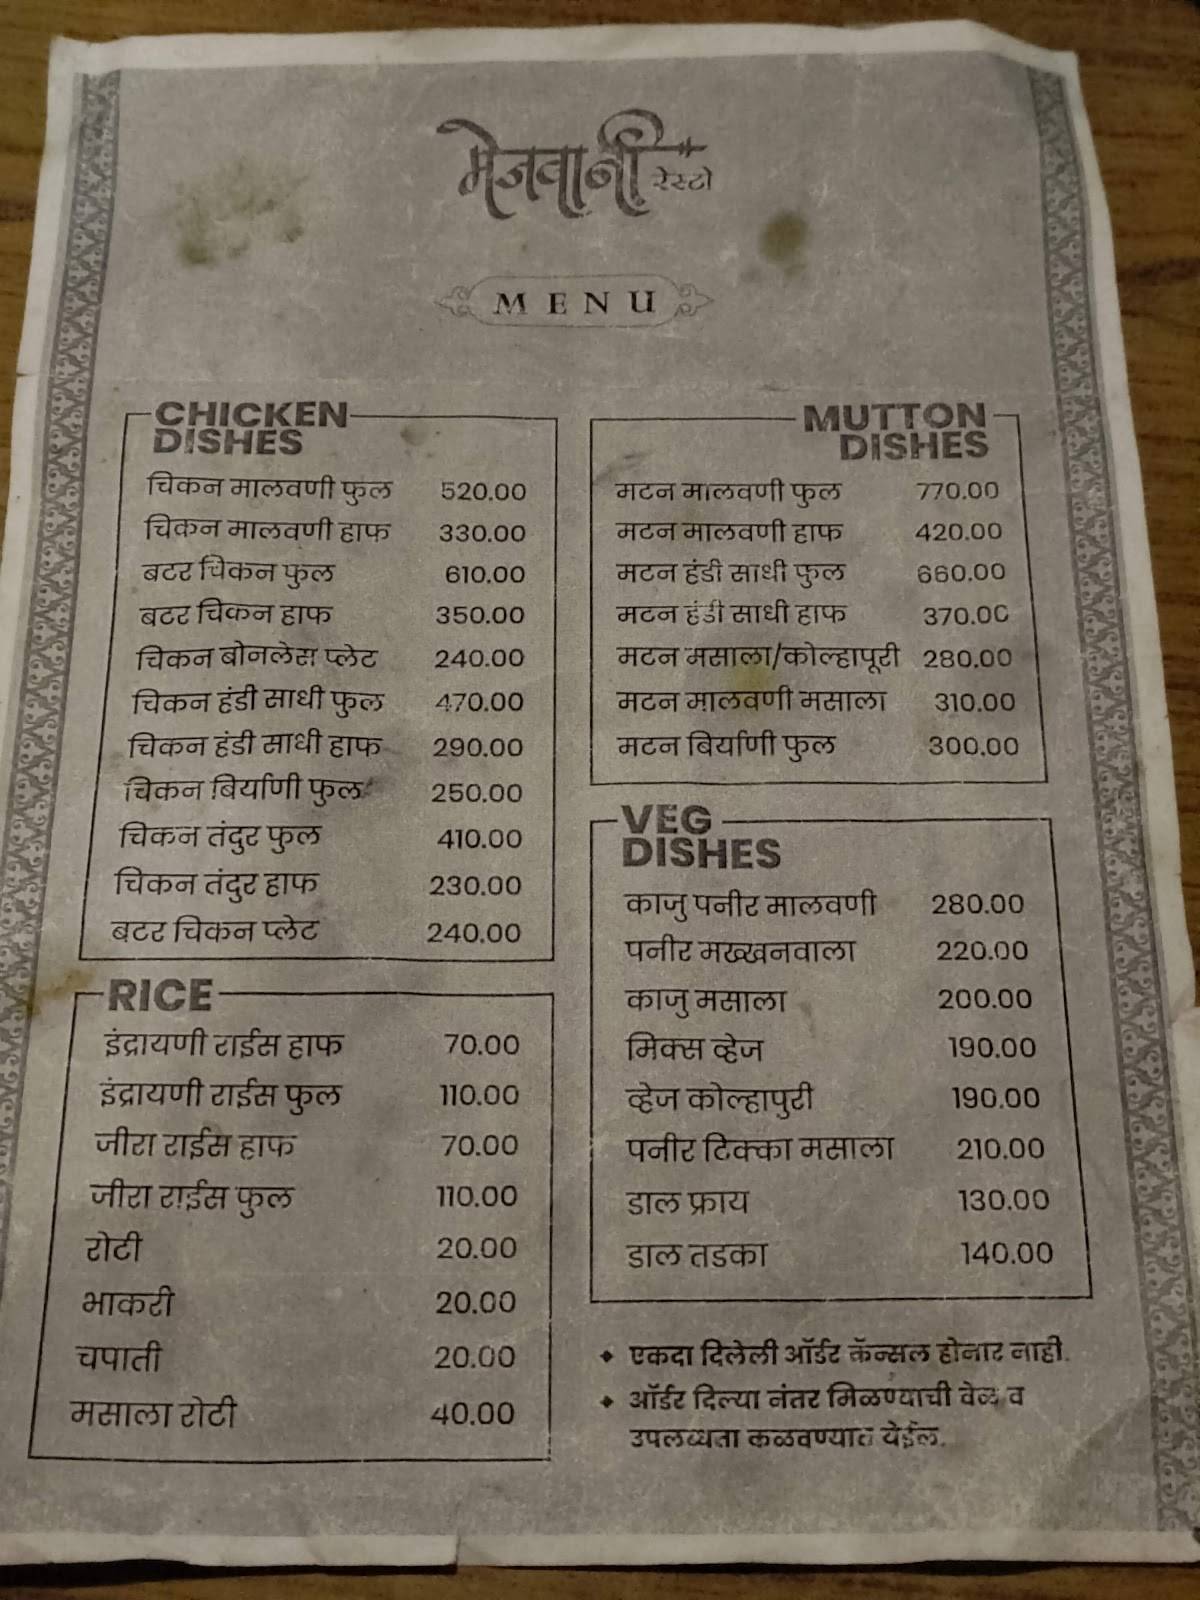 मेजवानी रेस्टो
MENU
CHICKEN
DISHES
चिकन मालवणी फुल 520.00
चिकन मालवणी हाफ 330.00
बटर चिकन फुल 610.00
बटर चिकन हाफ 350.00
चिकन बोनलेस प्लेट 240.00
चिकन हंडी साधी फुल 470.00
चिकन हंडी साधी हाफ 290.00
चिकन बिर्याणी फुल 250.00
चिकन तंदुर फुल 410.00
चिकन तंदुर हाफ 230.00
बटर चिकन प्लेट 240.00
RICE
इंद्रायणी राईस हाफ 70.00
इंद्रायणी राईस फुल 110.00
जीरा राईस हाफ 70.00
जीरा राईस फुल 110.00
रोटी 20.00
भाकरी 20.00
चपाती 20.00
मसाला रोटी 40.00
MUTTON
DISHES
मटन मालवणी फुल 770.00
मटन मालवणी हाफ 420.00
मटन हंडी साधी फुल 660.00
मटन हंडी साधी हाफ 370.00
मटन मसाला/कोल्हापूरी 280.00
मटन मालवणी मसाला 310.00
मटन बिर्याणी फुल 300.00
VEG
DISHES
काजु पनीर मालवणी 280.00
पनीर मख्खनवाला 220.00
काजु मसाला 200.00
मिक्स व्हेज 190.00
व्हेज कोल्हापुरी 190.00
पनीर टिक्का मसाला 210.00
डाल फ्राय 130.00
डाल तडका 140.00
एकदा दिलेली ऑर्डर कॅन्सल होनार नाही.
ऑर्डर दिल्या नंतर मिळण्याची वेळ व
उपलब्धता कळवण्यात येईल.